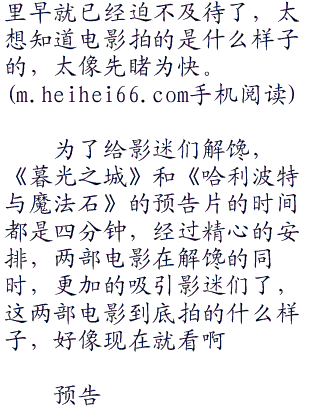 里早就已经迫不及待了，太
想知道电影拍的是什么样子
的，太像先睹为快。
(m.heihei66.com手机阅读)
为了给影迷们解馋，
《暮光之城》和《哈利波特
与魔法石》的预告片的时间
都是四分钟，经过精心的安
排，两部电影在解馋的同
时，更加的吸引影迷们了，
这两部电影到底拍的什么样
子，好像现在就看啊
预告